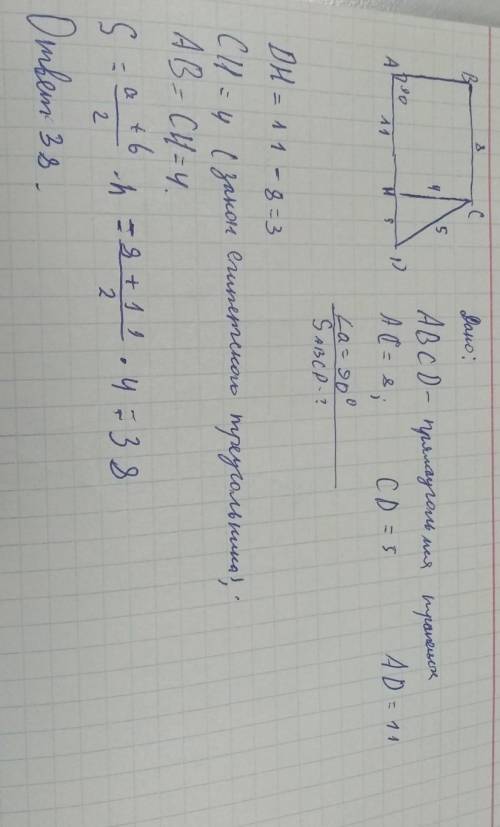 Дано:
ABCD - прямоугольная трапеция
AC = 8; CD = 5 AD = 11
∠a = 90°
S ABCD - ?
B 8 C
4 5
A 90 11 H ? D
DH = 11 - 8 = 3
CH = 4 (закон египетского треугольника);
AB = CH = 4.
S = a + b / 2 · h = 8 + 11 / 2 · 4 = 38
Ответ: 38.